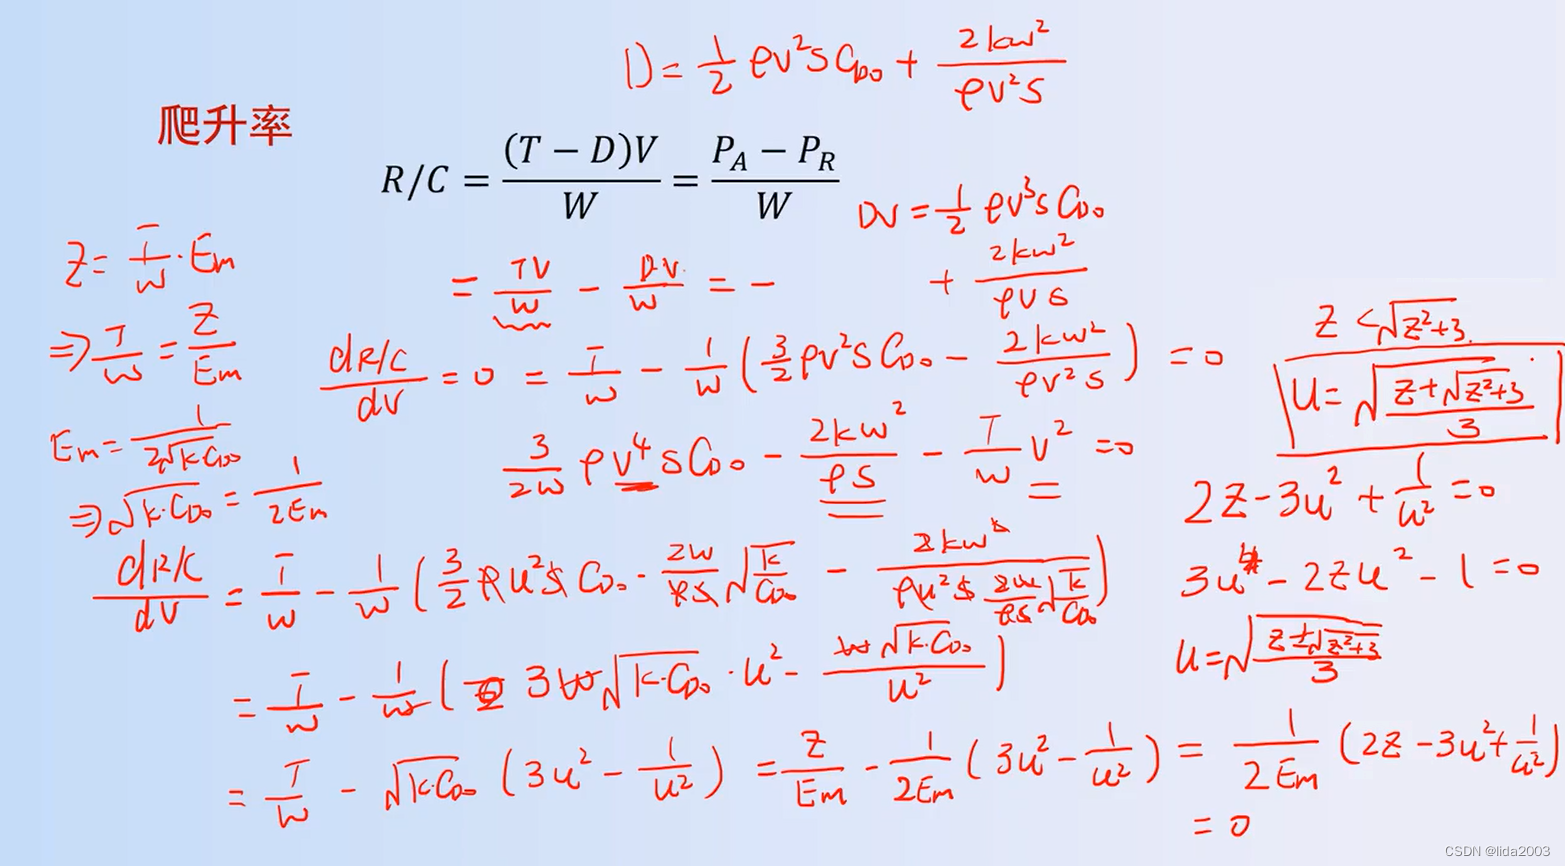 D = 1/2 ρv²SC_D₀ + 2kw²/(ρv²S)
爬升率
R/C = (T − D)V/W = (P_A − P_R)/W
DV = 1/2 ρv³SC_D₀
+ 2kw²/(ρvS)
Z = T/W · Em
= TV/W − DV/W = −
⇒ T/W = Z/Em
dR/C/dV = 0 = T/W − 1/W (3/2 ρv²SC_D₀ − 2kw²/(ρv²S)) = 0
Z < √(Z²+3)
u = √((Z+√(Z²+3))/3)
Em = 1/(2√(kC_D₀))
3/(2W) ρv⁴SC_D₀ − 2kw²/(ρS) − T/W v² = 0
⇒ √(k·C_D₀) = 1/(2Em)
2Z − 3u² + 1/u² = 0
dR/C/dV = T/W − 1/W (3/2 ρu²SC_D₀ · 2W/(ρS) √(k/C_D₀) − 2kw²/(ρu²S 2W/(ρS) √(k/C_D₀)))
3u⁴ − 2Zu² − 1 = 0
u = √((Z±√(Z²+3))/3)
= T/W − 1/W (3W√(k·C_D₀) · u² − W√(k·C_D₀)/u²)
= T/W − √(k·C_D₀) (3u² − 1/u²) = Z/Em − 1/(2Em) (3u² − 1/u²) = 1/(2Em) (2Z − 3u² + 1/u²)
= 0
CSDN @lida2003